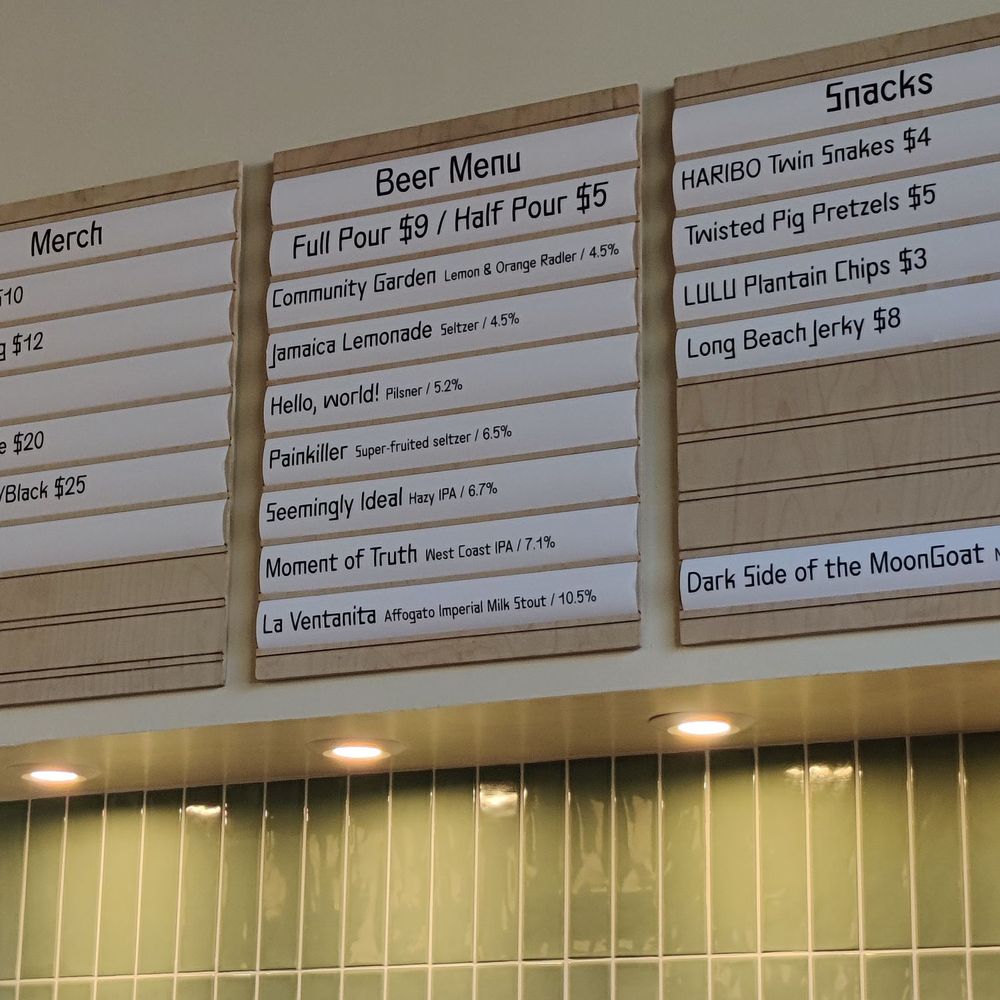 Merch
$10
$12
$20
/Black $25
Beer Menu
Full Pour $9 / Half Pour $5
Community Garden Lemon & Orange Radler / 4.5%
Jamaica Lemonade Seltzer / 4.5%
Hello, world! Pilsner / 5.2%
Painkiller Super-fruited seltzer / 6.5%
Seemingly Ideal Hazy IPA / 6.7%
Moment of Truth West Coast IPA / 7.1%
La Ventanita Affogato Imperial Milk Stout / 10.5%
Snacks
HARIBO Twin Snakes $4
Twisted Pig Pretzels $5
LULU Plantain Chips $3
Long Beach Jerky $8
Dark Side of the MoonGoat